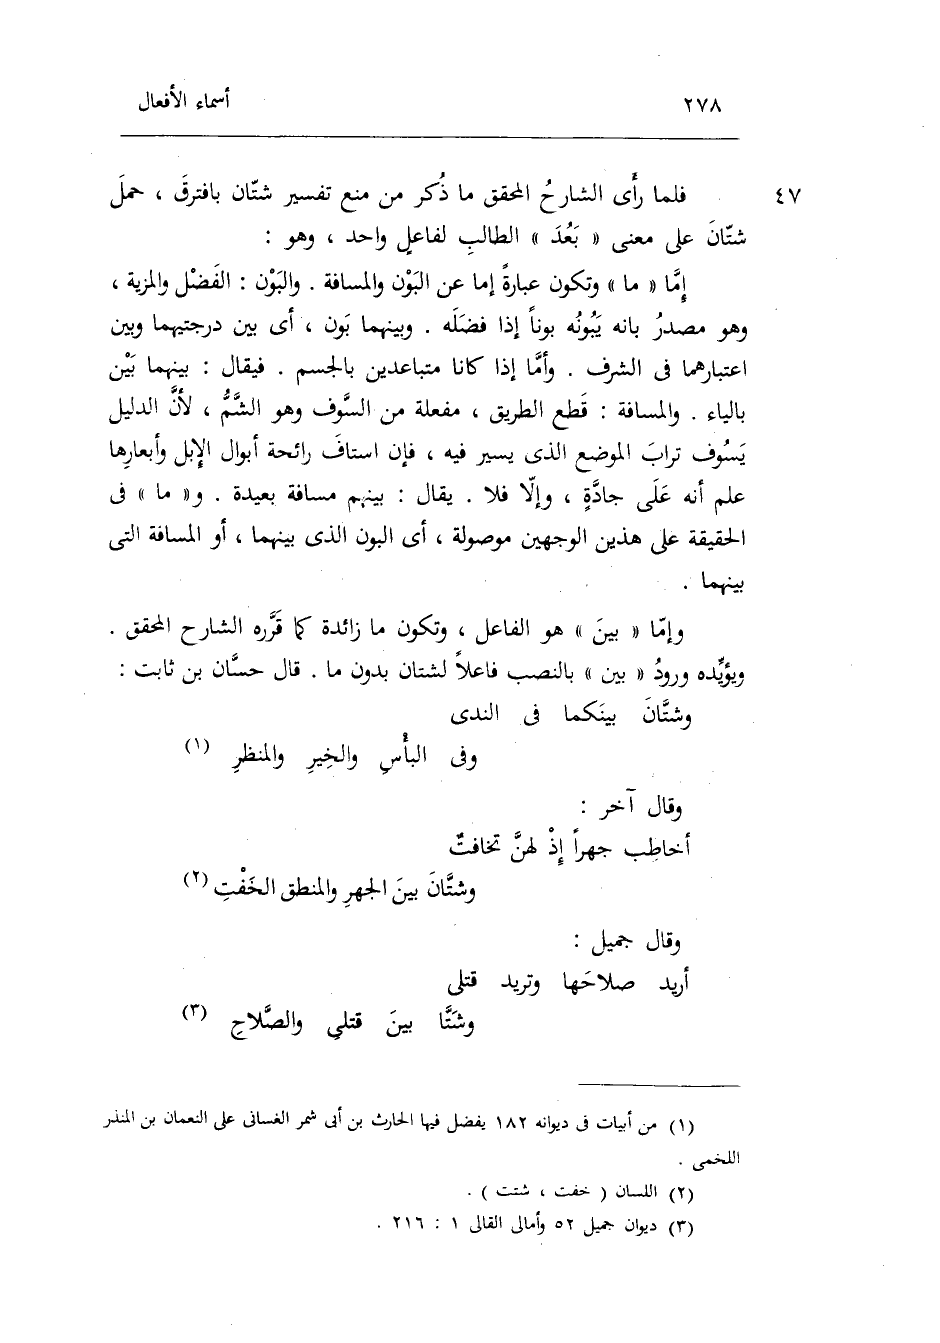 ٢٧٨ أسماء الأفعال
٤٧ فلما رأَى الشارحُ المحقق ما ذُكر من منع تفسير شتّان بافترقَ ، حملَ
شتّانَ على معنى « بَعُدَ » الطالبِ لفاعلٍ واحد ، وهو :
إمَّا « ما » وتكون عبارةً إما عن البَوْن والمسافة . والبَوْن : الفَضْل والمزية ،
وهو مصدرُ بانه يَبُونُه بوناً إذا فضلَه . وبينهما بَون ، أى بين درجتيهما وبين
اعتبارهما فى الشرف . وأمَّا إذا كانا متباعدين بالجسم . فيقال : بينهما بَيْن
بالياء . والمسافة : قَطع الطريق ، مفعلة من السَّوف وهو الشَّمُّ ، لأنَّ الدليل
يَسُوف ترابَ الموضع الذى يسير فيه ، فإن استافَ رائحة أبوال الإبل وأبعارِها
علم أنه عَلَى جادَّةٍ ، وإلّا فلا . يقال : بينهم مسافة بعيدة . و« ما » فى
الحقيقة على هذين الوجهين موصولة ، أى البون الذى بينهما ، أو المسافة التى
بينهما .
وإمّا « بينَ » هو الفاعل ، وتكون ما زائدة كما قَرَّره الشارح المحقق .
ويؤيِّده ورودُ « بين » بالنصب فاعلاً لشتان بدون ما . قال حسَّان بن ثابت :
وشتَّانَ بينَكما فى الندى
وفى البأْسِ والخِيرِ والمنظرِ (١)
وقال آخر :
أخاطب جهراً إذْ لهنَّ تخافتٌ
وشتَّانَ بينَ الجهرِ والمنطق الخَفْتِ (٢)
وقال جميل :
أريد صلاحَها وتريد قتلى
وشَتَّا بينَ قتلي والصَّلاحِ (٣)
(١) من أبيات فى ديوانه ١٨٢ يفضل فيها الحارث بن أبى شمر الغسانى على النعمان بن المنذر
اللخمى .
(٢) اللسان ( خفت ، شتت ) .
(٣) ديوان جميل ٥٢ وأمالى القالى ١ : ٢١٦ .